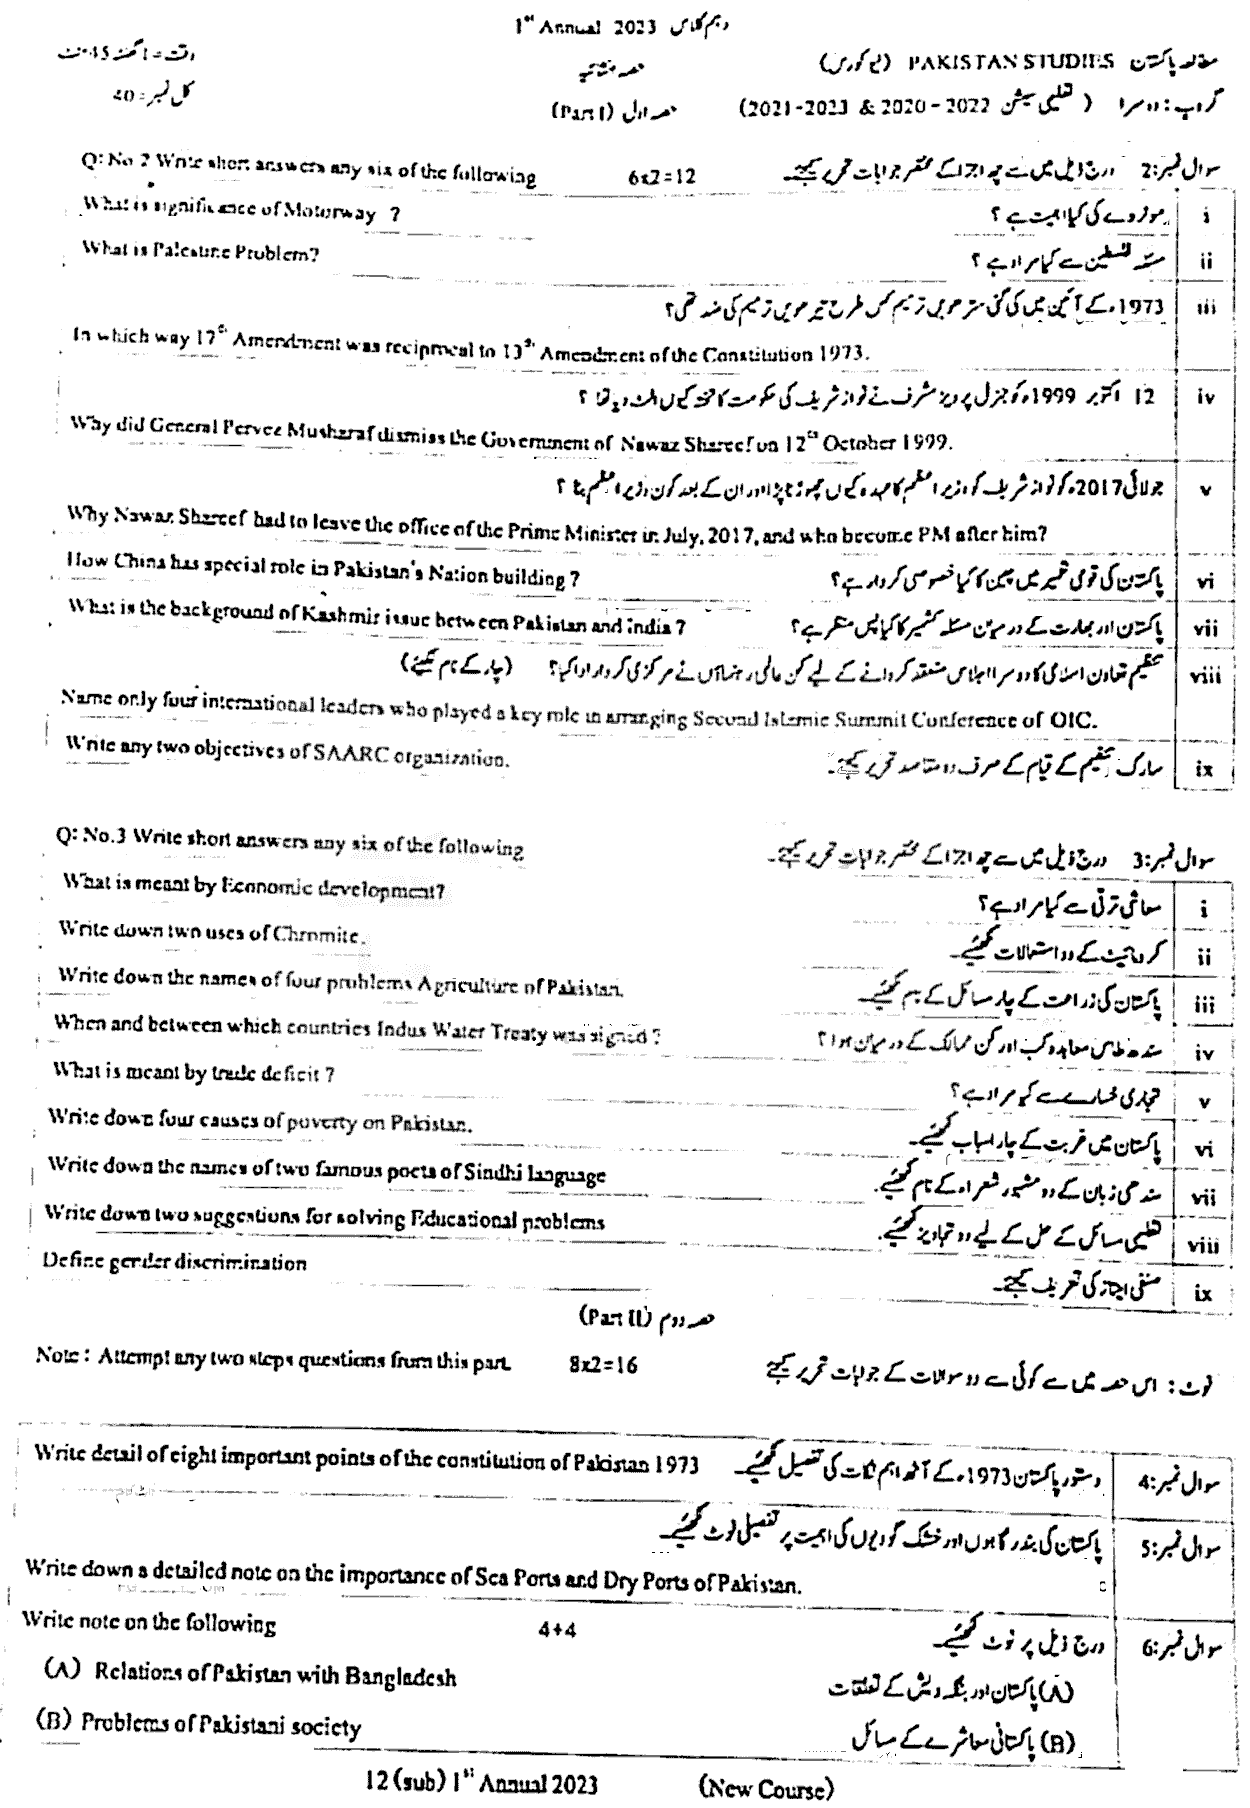 1st Annual 2023 دہم کلاس
مطالعہ پاکستان PAKISTAN STUDIES (نیو کورس) حصہ انشائیہ وقت = 1 گھنٹہ 45 منٹ
گروپ : دوسرا ( تعلیمی سیشن 2022 - 2020 & 2023-2021) حصہ اول (Part I) کل نمبر = 40
Q: No 2 Write short answers any six of the following 6x2=12 سوال نمبر:2 درج ذیل میں سے چھ اجزا کے مختصر جوابات تحریر کیجئے۔
What is significance of Motorway ? موٹروے کی کیا اہمیت ہے ؟ i
What is Palestine Problem? مسئلہ فلسطین سے کیا مراد ہے ؟ ii
1973ء کے آئین میں کی گئی سترھویں ترمیم کس طرح تیرھویں ترمیم کی ضد تھی؟ iii
In which way 17th Amendment was reciprocal to 13th Amendment of the Constitution 1973.
12 اکتوبر 1999ء کو جنرل پرویز مشرف نے نواز شریف کی حکومت کا تختہ کیوں الٹ دیا تھا ؟ iv
Why did General Pervez Musharaf dismiss the Government of Nawaz Shareef on 12th October 1999.
جولائی 2017ء کو نواز شریف کو وزیراعظم کا عہدہ کیوں چھوڑنا پڑا اور ان کے بعد کون وزیراعظم بنا ؟ v
Why Nawaz Shareef had to leave the office of the Prime Minister in July, 2017, and who become PM after him?
How China has special role in Pakistan's Nation building ? پاکستان کی قومی تعمیر میں چین کا کیا خصوصی کردار ہے؟ vi
What is the background of Kashmir issue between Pakistan and India ? پاکستان اور بھارت کے درمیان مسئلہ کشمیر کا کیا پس منظر ہے؟ vii
تنظیم تعاون اسلامی کا دوسرا اجلاس منعقد کروانے کے لیے کن عالمی رہنماؤں نے مرکزی کردار ادا کیا؟ (چار کے نام لکھیئے) viii
Name only four international leaders who played a key role in arranging Second Islamic Summit Conference of OIC.
Write any two objectives of SAARC organization. سارک تنظیم کے قیام کے صرف دو مقاصد تحریر کیجئے۔ ix
Q: No.3 Write short answers any six of the following سوال نمبر:3 درج ذیل میں سے چھ اجزا کے مختصر جوابات تحریر کیجئے۔
What is meant by Economic development? معاشی ترقی سے کیا مراد ہے؟ i
Write down two uses of Chromite. کرومائیٹ کے دو استعمالات لکھیئے۔ ii
Write down the names of four problems Agriculture of Pakistan. پاکستان کی زراعت کے چار مسائل کے نام لکھیئے۔ iii
When and between which countries Indus Water Treaty was signed ? سندھ طاس معاہدہ کب اور کن ممالک کے درمیان ہوا ؟ iv
What is meant by trade deficit ? تجارتی خسارے سے کیا مراد ہے؟ v
Write down four causes of poverty on Pakistan. پاکستان میں غربت کے چار اسباب لکھیئے۔ vi
Write down the names of two famous poets of Sindhi language سندھی زبان کے دو مشہور شعراء کے نام لکھیئے۔ vii
Write down two suggestions for solving Educational problems تعلیمی مسائل کے حل کے لیے دو تجاویز لکھیئے۔ viii
Define gender discrimination صنفی امتیاز کی تعریف کیجئے۔ ix
حصہ دوم (Part II)
Note : Attempt any two steps questions from this part. 8x2=16 نوٹ : اس حصہ میں سے کوئی سے دو سوالات کے جوابات تحریر کیجئے
Write detail of eight important points of the constitution of Pakistan 1973 دستور پاکستان 1973ء کے آٹھ اہم نکات کی تفصیل لکھیئے۔ سوال نمبر:4
پاکستان کی بندرگاہوں اور خشک گودیوں کی اہمیت پر تفصیلی نوٹ لکھیئے۔ سوال نمبر:5
Write down a detailed note on the importance of Sea Ports and Dry Ports of Pakistan.
Write note on the following 4+4 درج ذیل پر نوٹ لکھیئے۔ سوال نمبر:6
(A) Relations of Pakistan with Bangladesh (A) پاکستان اور بنگلہ دیش کے تعلقات
(B) Problems of Pakistani society (B) پاکستانی معاشرے کے مسائل
12 (sub) 1st Annual 2023 (New Course)